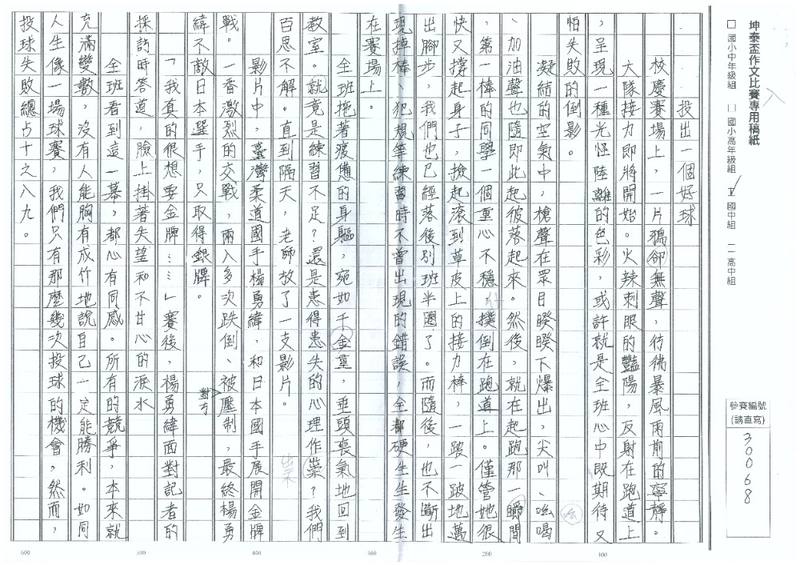 坤泰盃作文比賽專用稿紙
□國小中年級組 □國小高年級組 ☑國中組 □高中組
參賽編號
(請直寫)
30068
投出一個好球
校慶賽場上，一片鴉卻無聲，彷彿暴風雨前的寧靜。
大隊接力即將開始。火辣刺眼的豔陽，反射在跑道上
，呈現一種光怪陸離的色彩，或許就是全班心中既期待又
怕失敗的倒影。
凝結的空氣中，槍聲在眾目睽睽下爆出，尖叫、吆喝
、加油聲也隨即此起彼落起來。然後，就在起跑那一瞬間
，第一棒的同學一個重心不穩，撲倒在跑道上。僅管她很
快又撐起身子，撿起滾到草皮上的接力棒，一跛一跛地邁
出腳步，我們也已經落後別班半圈了。而隨後，也不斷出
現掉棒、犯規等練習時不曾出現的錯誤，全都硬生生發生
在賽場上。
全班拖著疲憊的身軀，宛如千金重，垂頭喪氣地回到
教室。就竟是練習不足？還是患得患失的心理作祟？我們
百思不解。直到隔天，老師放了一支影片。
影片中，臺灣柔道國手楊勇緯，和日本國手展開金牌
戰。一番激烈的交戰，兩人多次跌倒、被對方壓制，最終楊勇
緯不敵日本選手，只取得銀牌。
「我真的很想要金牌……」賽後，楊勇緯面對記者的
採訪時答道，臉上掛著失望和不甘心的淚水
全班看到這一幕，都心有同感。所有的競爭，本來就
充滿變數，沒有人能胸有成竹地說自己一定能勝利。如同
人生像一場球賽，我們只有那麼幾次投球的機會，然而，
投球失敗總占十之八九。
100
200
300
400
500
600